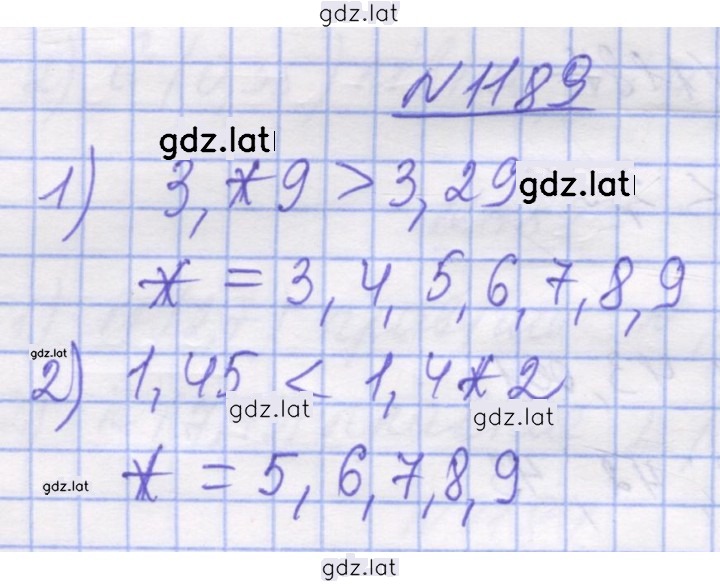 gdz.lat
№1189
gdz.lat
1) 3,*9 > 3,29 gdz.lat
* = 3, 4, 5, 6, 7, 8, 9
gdz.lat
2) 1,45 < 1,4*2
gdz.lat gdz.lat
gdz.lat * = 5, 6, 7, 8, 9
gdz.lat